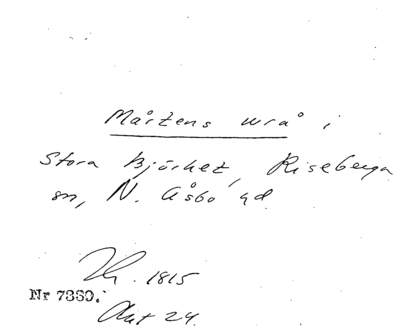 Mårtens wrå i
Stora Björket, Riseberga
sn, N. Åsbo hd
1815
Nr 7330.
Akt 24.